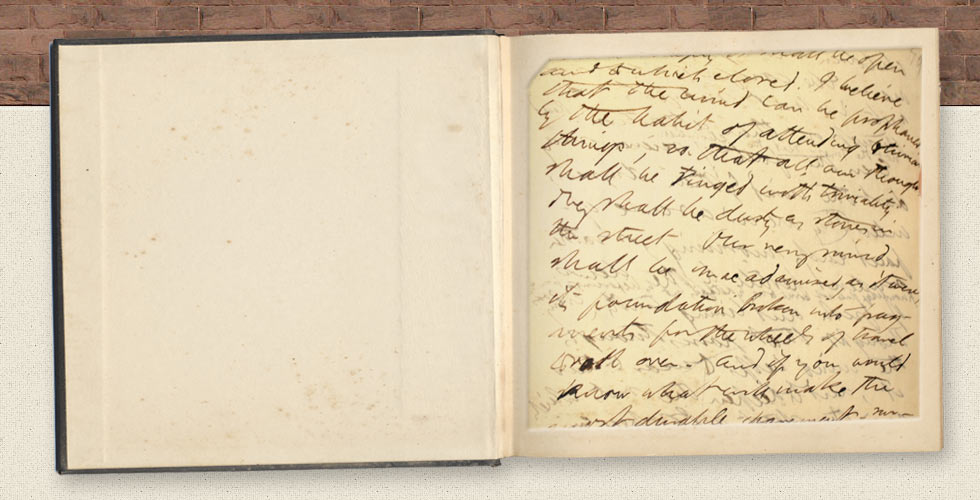 shall be open
and which closed. I believe
that the mind can be prophaned
by the habit of attending to trivial
things, so that all our thoughts
shall be tinged with triviality
They shall be dusty as stones in
the street Our very mind
shall be macadamized, as it were
its foundation broken into frag-
ments for the wheels of travel
to roll over. and if you would
know what will make the
most durable pavement, sur-